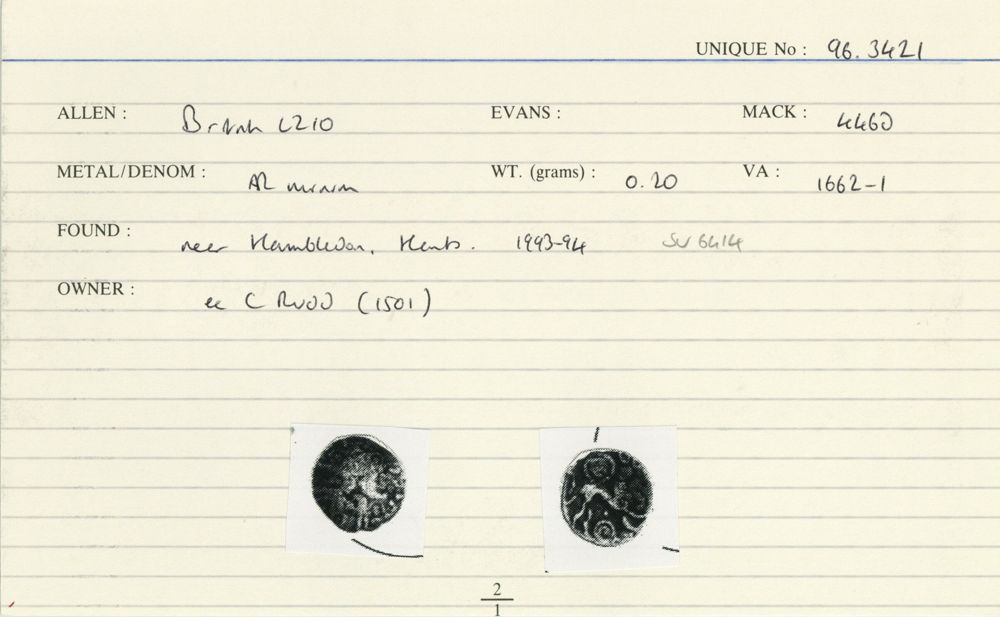 UNIQUE No : 96.3421
ALLEN : British LZ10 EVANS : MACK :
METAL/DENOM : AR minim WT. (grams) : 0.20 VA : 1662-1
FOUND : near Hambledon, Hants. 1993-94 SU 6414
OWNER : ex C RUDD (1501)
2
1